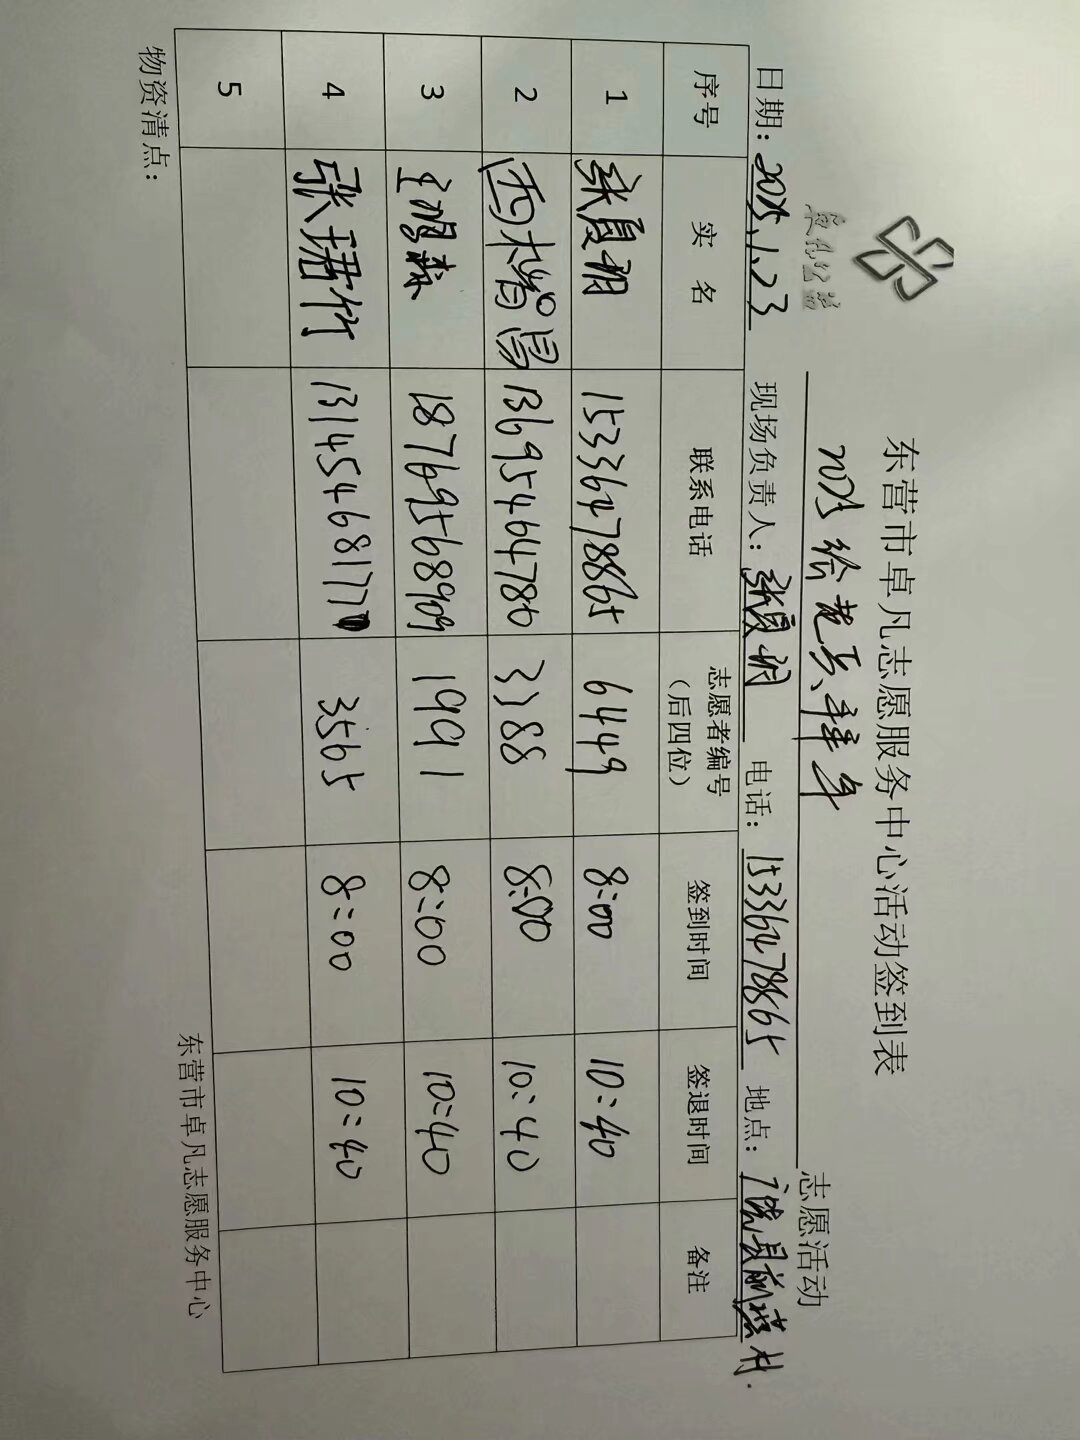 东营市卓凡志愿服务中心活动签到表
2025给老兵拜年 志愿活动
日期：2025.1.23 现场负责人：张夏明 电话：15336478865 地点：广饶县前燕村.
序号 实名 联系电话 志愿者编号（后四位） 签到时间 签退时间 备注
1 张夏明 15336478865 6449 8:00 10:40
2 13695464780 3388 8:00 10:40
3 18769568909 1991 8:00 10:40
4 张珺竹 8:00 3565 10:40
5
物资清点：
东营市卓凡志愿服务中心